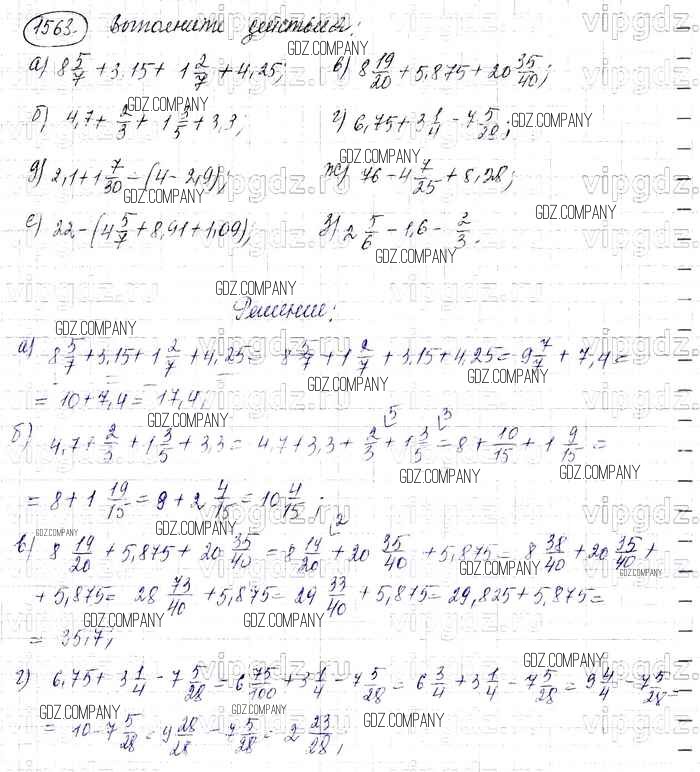 1563. Выполните действия:
а) 8 5/7 + 3,15 + 1 2/7 + 4,25; в) 8 19/20 + 5,875 + 20 35/40;
б) 4,7 + 2/3 + 1 3/5 + 3,3; г) 6,75 + 3 1/4 - 7 5/28;
д) 2,1 + 1 7/30 - (4 - 2,9); ж) 76 - 4 7/25 + 8,28;
е) 22 - (4 5/7 + 8,91 + 1,09); з) 2 5/6 - 1,6 - 2/3.
Решение:
а) 8 5/7 + 3,15 + 1 2/7 + 4,25 = 8 5/7 + 1 2/7 + 3,15 + 4,25 = 9 7/7 + 7,4 =
= 10 + 7,4 = 17,4;
б) 4,7 + 2/3 + 1 3/5 + 3,3 = 4,7 + 3,3 + 2/3 + 1 3/5 = 8 + 10/15 + 1 9/15 =
= 8 + 1 19/15 = 9 + 2 4/15 = 10 4/15;
в) 8 19/20 + 5,875 + 20 35/40 = 8 19/20 + 20 35/40 + 5,875 = 8 38/40 + 20 35/40 +
+ 5,875 = 28 73/40 + 5,875 = 29 33/40 + 5,875 = 29,825 + 5,875 =
= 35,7;
г) 6,75 + 3 1/4 - 7 5/28 = 6 75/100 + 3 1/4 - 7 5/28 = 6 3/4 + 3 1/4 - 7 5/28 = 9 4/4 - 7 5/28 =
= 10 - 7 5/28 = 9 28/28 - 7 5/28 = 2 23/28;
GDZ.COMPANY
vipgdz.ru